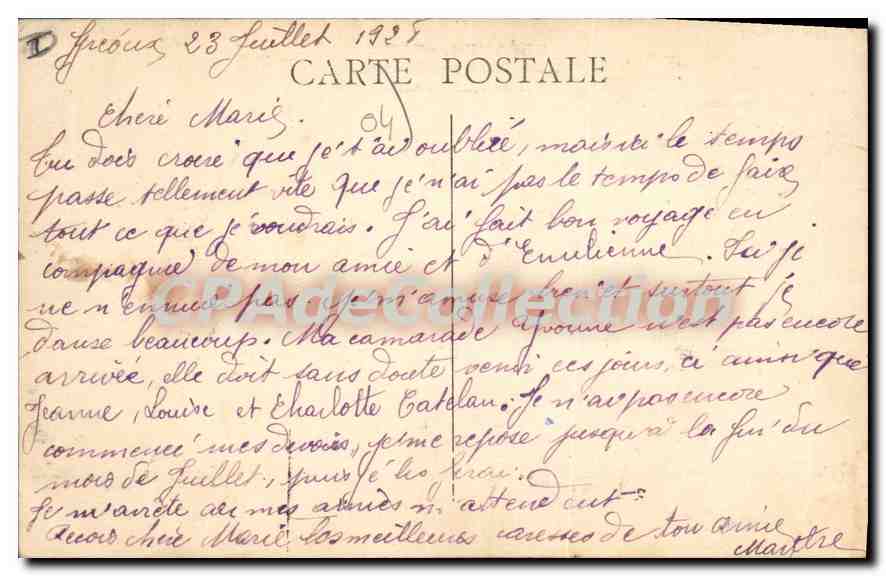 Gréoux 23 Juillet 1928
CARTE POSTALE
04
Chère Marie.
Tu dois croire que je t'ai oubliée, mais ici le temps
passe tellement vite que je n'ai pas le temps de faire
tout ce que je voudrais. J'ai fait bon voyage en
compagnie de mon amie et d'Emilienne. Ici je
ne m'ennuie pas, je m'amuse bien et surtout je
CPAdeCollection
danse beaucoup. Ma camarade Yvonne n'est pas encore
arrivée, elle doit sans doute venir ces jours ci ainsi que
Jeanne, Louise et Charlotte Catelan. Je n'ai pas encore
commencé mes devoirs, je me repose jusqu'à la fin du
mois de Juillet, puis je les ferai.
Je m'arrête car mes amies m'attendent
Reçois chère Marie les meilleures caresses de ton amie
Marthe